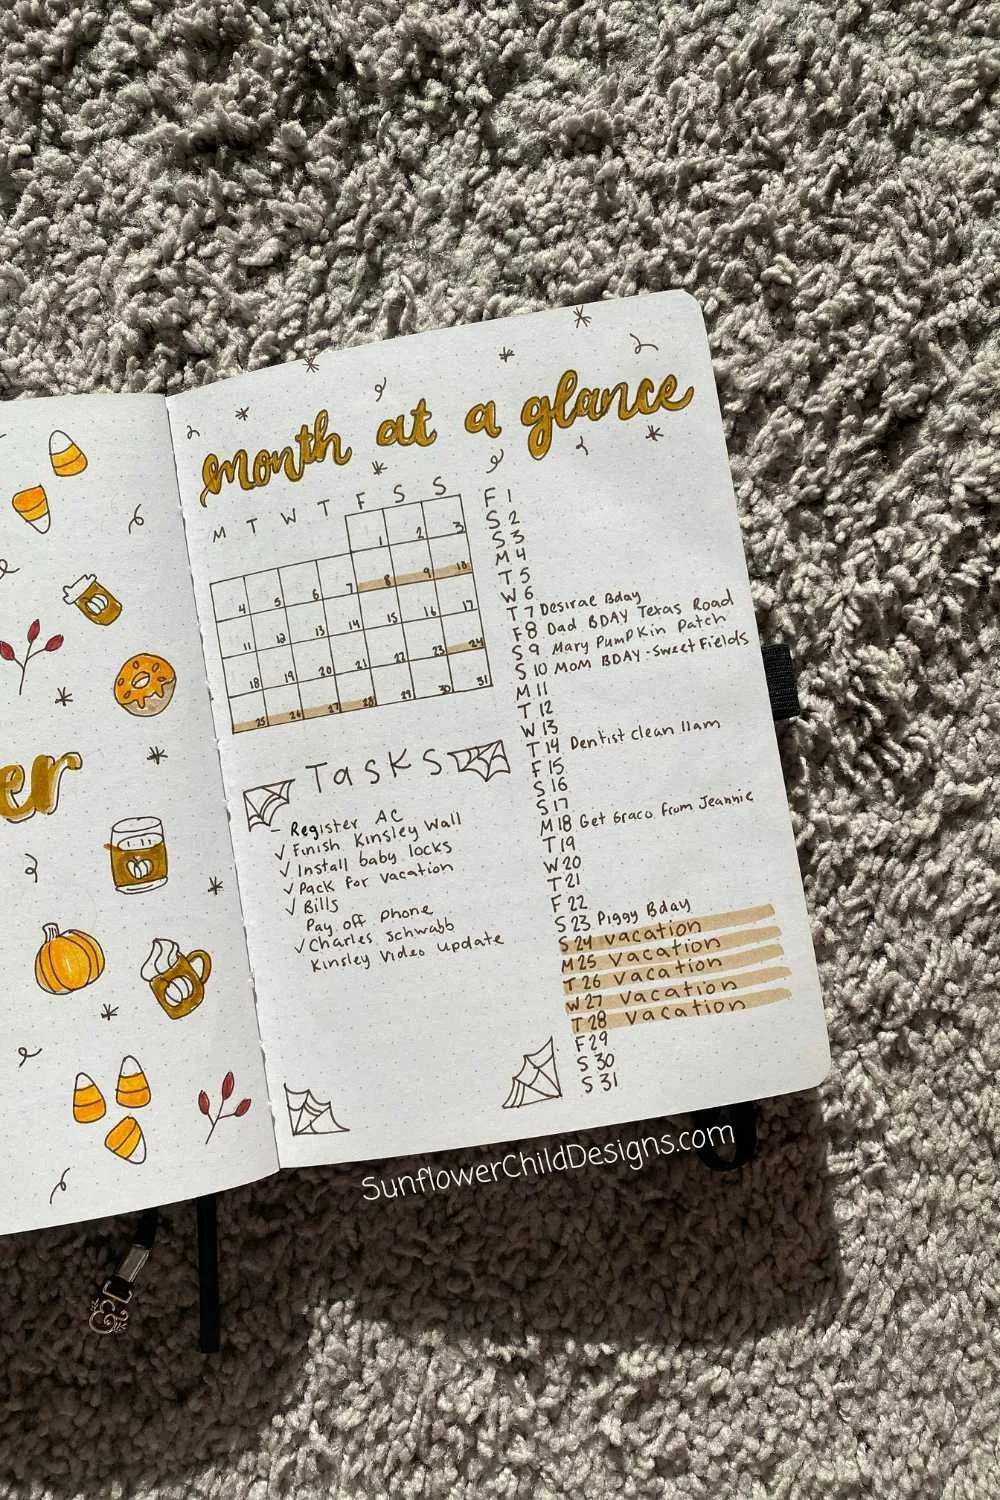 er
month at a glance
M T W T F S S
1 2 3
4 5 6 7 8 9 10
11 12 13 14 15 16 17
18 19 20 21 22 23 24
25 26 27 28 29 30 31
Tasks
- Register AC
✓ Finish Kinsley Wall
✓ Install baby locks
✓ Pack for vacation
✓ Bills
Pay off phone
✓ Charles Schwabb
Kinsley Video update
F 1
S 2
S 3
M 4
T 5
W 6
T 7 Desirae Bday
F 8 Dad BDAY Texas Road
S 9 Mary Pumpkin Patch
S 10 Mom BDAY - Sweet Fields
M 11
T 12
W 13
T 14 Dentist clean 11am
F 15
S 16
S 17
M 18 Get Graco from Jeannie
T 19
W 20
T 21
F 22
S 23 Piggy Bday
S 24 Vacation
M 25 Vacation
T 26 Vacation
W 27 Vacation
T 28 Vacation
F 29
S 30
S 31
SunflowerChildDesigns.com